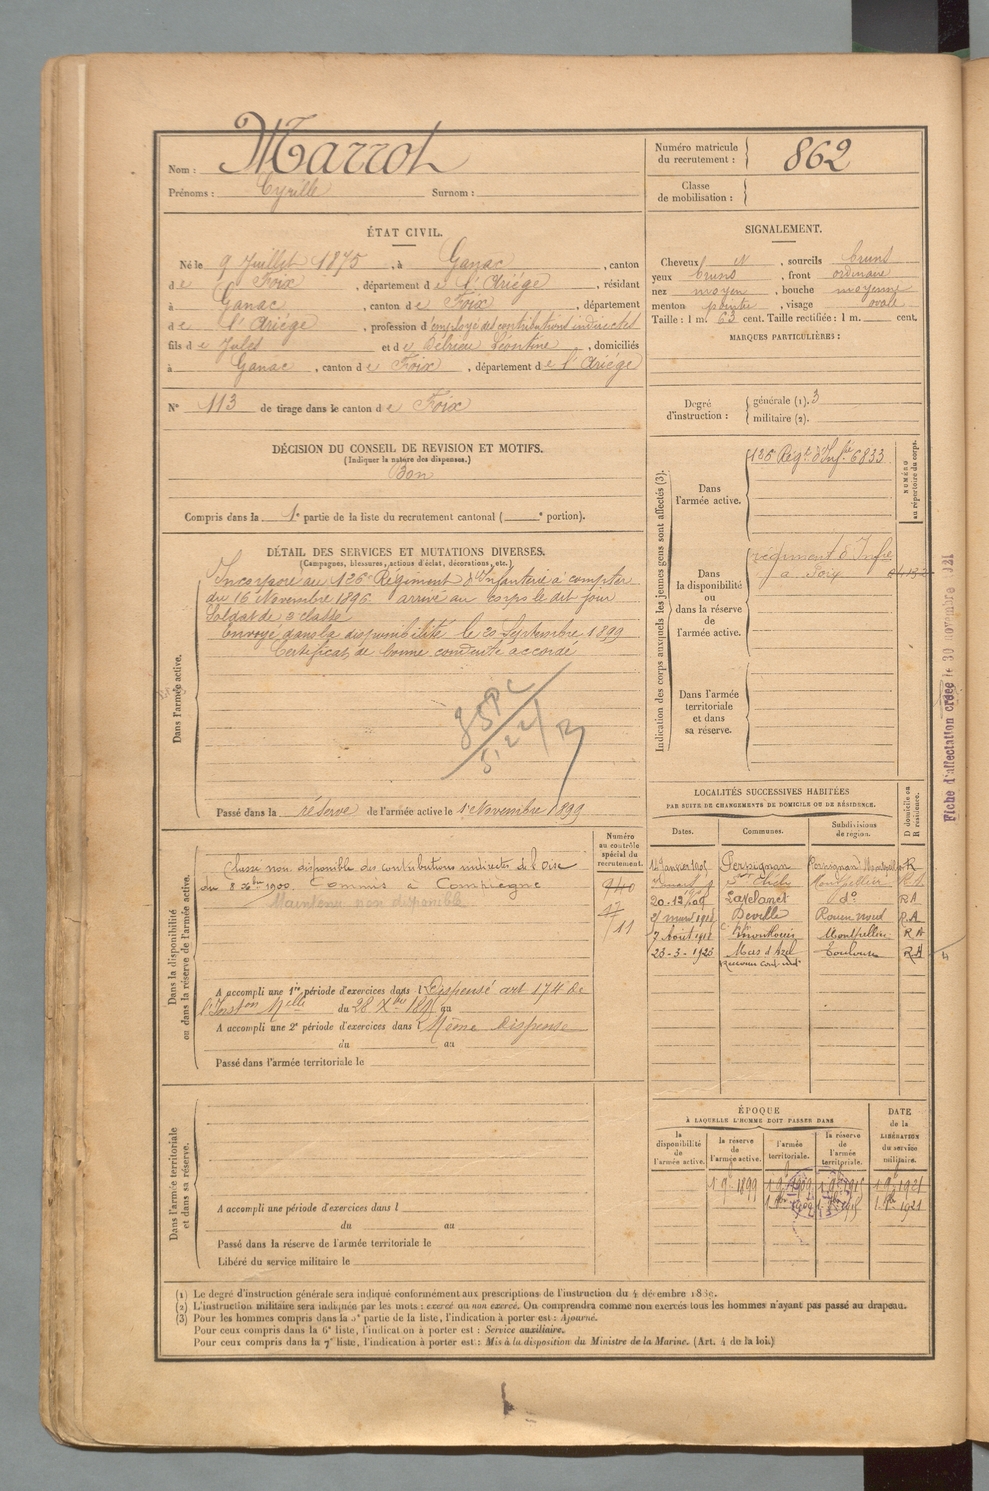 Nom : Marrot
Prénoms : Cyrille Surnom :
Numéro matricule
du recrutement : 862
Classe
de mobilisation :
ÉTAT CIVIL.
Né le 9 Juillet 1875, à Ganac, canton
de Foix, département de l'Ariége, résidant
à Ganac, canton de Foix, département
de l'Ariége, profession d'employé des contributions indirectes
fils de Jules et de Léontine, domiciliés
à Ganac, canton de Foix, département de l'Ariége
N° 113 de tirage dans le canton de Foix
SIGNALEMENT.
Cheveux N, sourcils bruns
yeux bruns, front ordinaire
nez moyen, bouche moyenne
menton pointu, visage ovale
Taille : 1 m. 63 cent. Taille rectifiée : 1 m. cent.
MARQUES PARTICULIÈRES :
Degré
d'instruction :
générale (1). 3
militaire (2).
DÉCISION DU CONSEIL DE REVISION ET MOTIFS.
(Indiquer la nature des dispenses.)
Bon
Compris dans la 1e partie de la liste du recrutement cantonal ( e portion).
DÉTAIL DES SERVICES ET MUTATIONS DIVERSES.
(Campagnes, blessures, actions d'éclat, décorations, etc.)
Dans l'armée active.
Incorporé au 126e Régiment d'Infanterie à compter
du 16 Novembre 1896 arrivé au corps le dit jour
Soldat de 2e classe
Envoyé dans la disponibilité le 20 Septembre 1899
Certificat de bonne conduite accordé
Passé dans la réserve de l'armée active le 1er Novembre 1899
Indication des corps auxquels les jeunes gens sont affectés (3).
NUMÉRO
au répertoire du corps.
Dans
l'armée active.
126 Régt d'Inftie 6833
Dans
la disponibilité
ou
dans la réserve
de
l'armée active.
régiment d'Infie
à Foix
Dans l'armée
territoriale
et dans
sa réserve.
Fiche d'affectation créée le 30 novembre 1921
Dans la disponibilité
ou dans la réserve de l'armée active.
Numéro
au contrôle
spécial du
recrutement.
940
17
11
Classé non disponible des contributions indirectes de l'Oise
du 8 Xbre 1900. Commis à Compiègne
Maintenu non disponible
A accompli une 1re période d'exercices dans l Dispensé art 174 de
l'Inston Mlle du 28 Xbre au
A accompli une 2e période d'exercices dans l Même dispense
du au
Passé dans l'armée territoriale le
LOCALITÉS SUCCESSIVES HABITÉES
PAR SUITE DE CHANGEMENTS DE DOMICILE OU DE RÉSIDENCE.
Dates. Communes. Subdivisions
de région. D domicile ou
R résidence.
Perpignan Perpignan R
Montpellier R A
20-12-1909 Lavelanet do RA
Deville Rouen nord R.A
7 Août Montpellier R A
23-3-1923 Mas d'Azil Toulouse RA
Dans l'armée territoriale
et dans sa réserve.
A accompli une période d'exercices dans l
du au
Passé dans la réserve de l'armée territoriale le
Libéré du service militaire le
ÉPOQUE
À LAQUELLE L'HOMME DOIT PASSER DANS
DATE
de la
LIBÉRATION
du service
militaire.
la
disponibilité
de
l'armée active.
la réserve
de
l'armée active.
l'armée
territoriale.
la réserve
de
l'armée
territoriale.
1 9bre 1899 1 9bre 1909 1 9bre 1915 1 9bre 1921
1 8bre 1921
(1) Le degré d'instruction générale sera indiqué conformément aux prescriptions de l'instruction du 4 décembre 1889.
(2) L'instruction militaire sera indiquée par les mots : exercé ou non exercé. On comprendra comme non exercés tous les hommes n'ayant pas passé au drapeau.
(3) Pour les hommes compris dans la 5e partie de la liste, l'indication à porter est : Ajourné.
Pour ceux compris dans la 6e liste, l'indication à porter est : Service auxiliaire.
Pour ceux compris dans la 7e liste, l'indication à porter est : Mis à la disposition du Ministre de la Marine. (Art. 4 de la loi.)